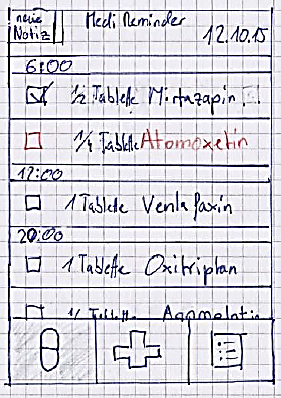 neue
Notiz
Medi Reminder
12.10.15
6:00
1/2 Tablette Mirtazapin
1/4 Tablette Atomoxetin
12:00
1 Tablette Venlafaxin
20:00
1 Tablette Oxitriptan
Tablette Agomelatin